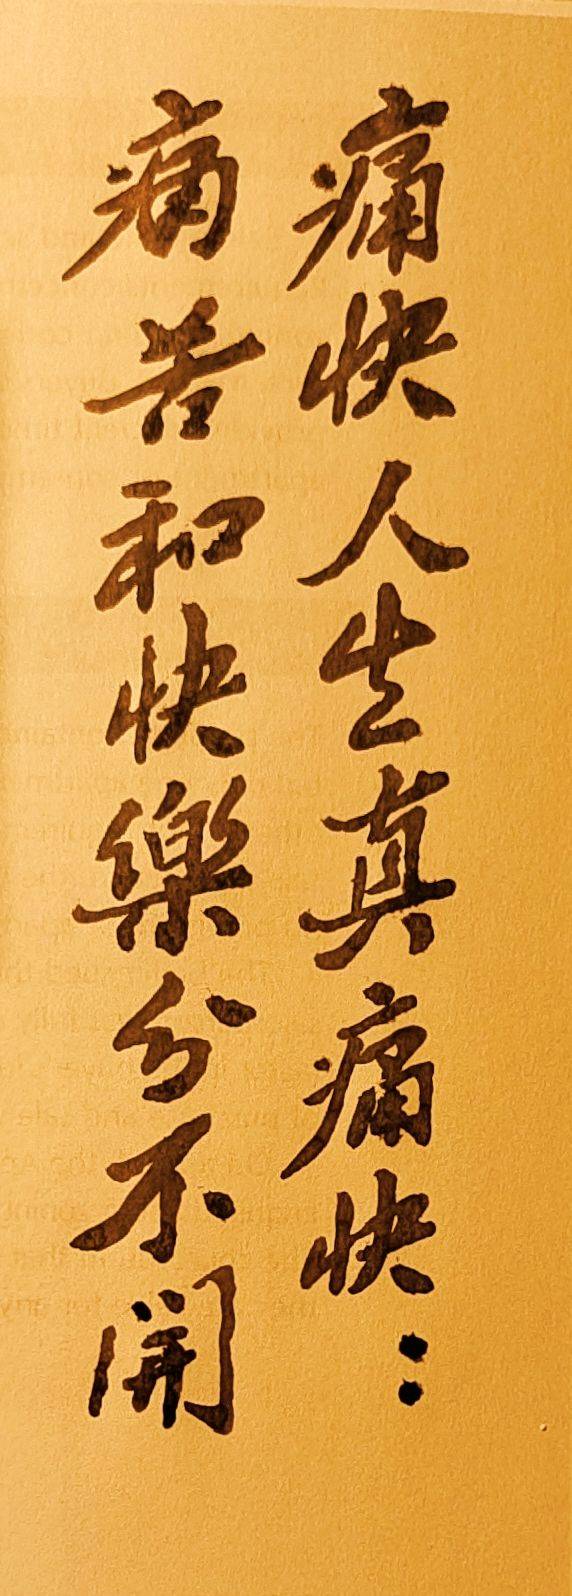 痛快人生真痛快：
病苦和快樂分不開